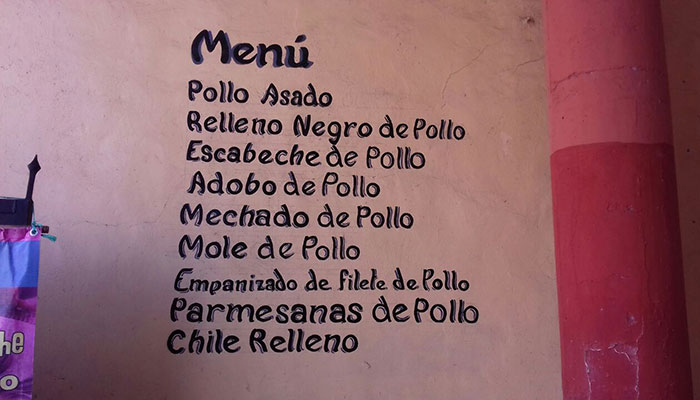 Menú
Pollo Asado
Relleno Negro de Pollo
Escabeche de Pollo
Adobo de Pollo
Mechado de Pollo
Mole de Pollo
Empanizado de filete de Pollo
Parmesanas de Pollo
Chile Relleno